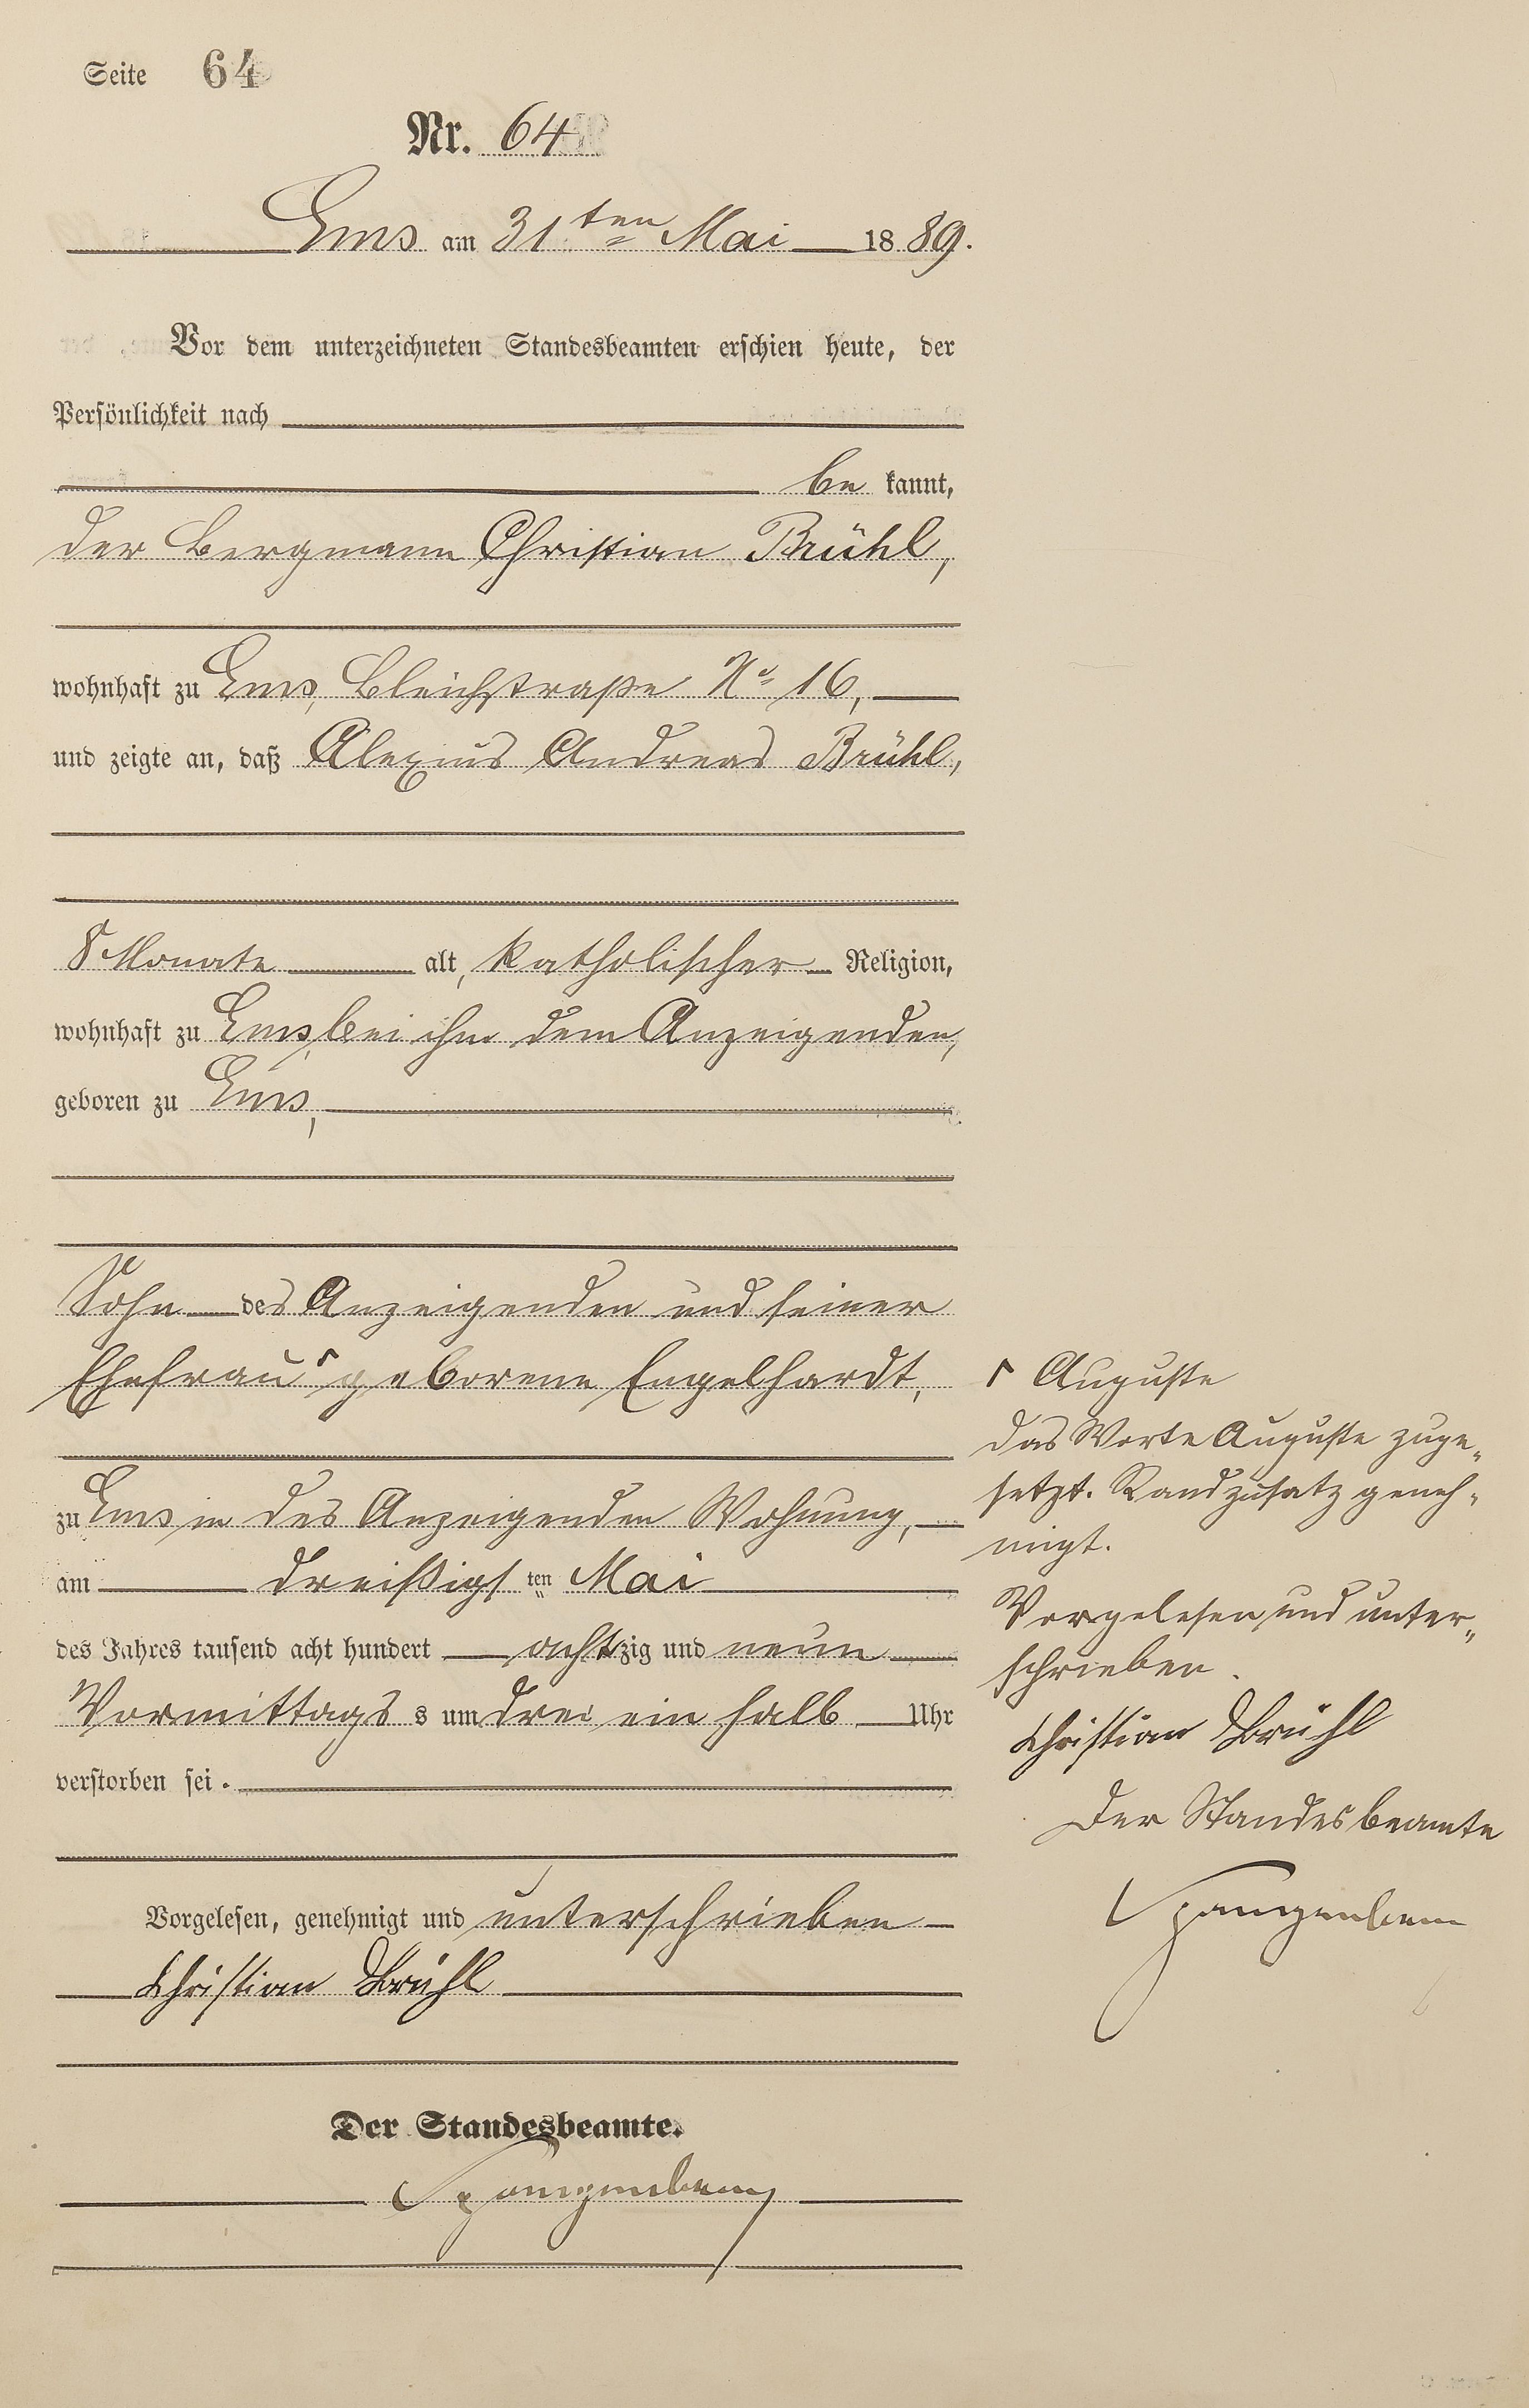 Seite 64
Nr. 64
Ems am 31ten Mai 1889.
Vor dem unterzeichneten Standesbeamten erschien heute, der
Persönlichkeit nach
be kannt,
der Bergmann Christian Brühl,
wohnhaft zu Ems, Bleichstraße No 16,
und zeigte an, daß Alexius Andreas Brühl,
8 Monate alt, katholischer Religion,
wohnhaft zu Ems, bei ihm dem Anzeigenden,
geboren zu Ems,
Sohn des Anzeigenden und seiner
Ehefrau geborene Engelhardt,
zu Ems in des Anzeigenden Wohnung,
am dreißigsten Mai
des Jahres tausend acht hundert achtzig und neun
Vormittags s um drei ein halb Uhr
verstorben sei.
Vorgelesen, genehmigt und unterschrieben
Christian Brühl
Der Standesbeamte.
Auguste
das Worte Auguste zuge-
setzt. Randzusatz geneh-
migt.
Vorgelesen und unter-
schrieben.
Christian Brühl
Der Standesbeamte